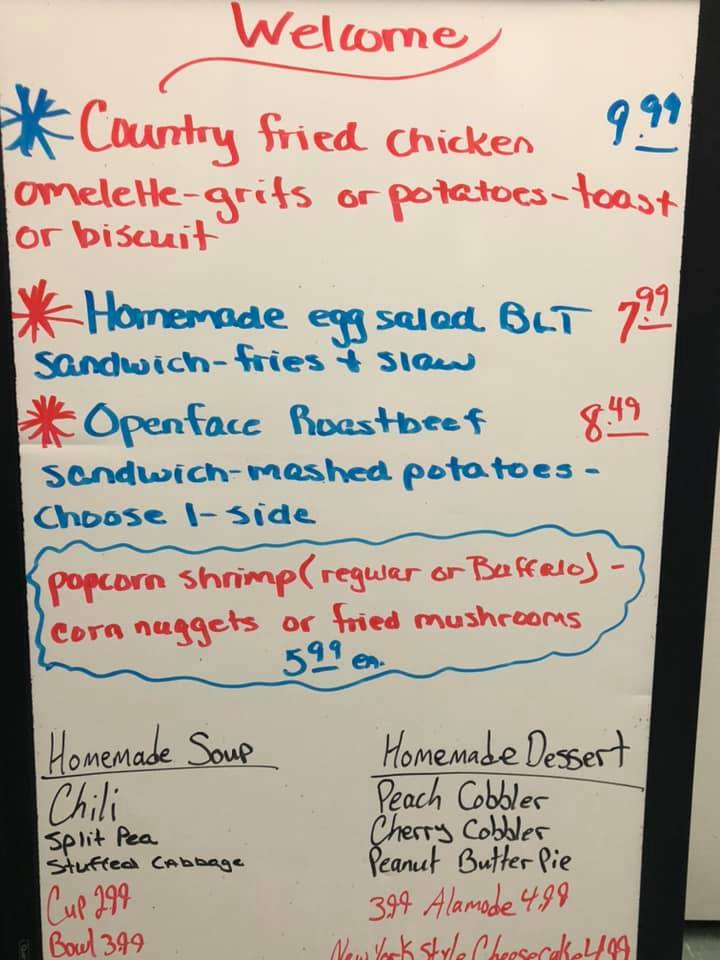 Welcome
Country fried chicken 9.99
omelette-grits or potatoes-toast
or biscuit
Homemade egg salad BLT 7.99
sandwich-fries + slaw
Openface Roastbeef 8.49
sandwich-mashed potatoes-
choose 1-side
popcorn shrimp (regular or Buffalo) -
corn nuggets or fried mushrooms
5.99 ea.
Homemade Soup
Chili
Split Pea
Stuffed Cabbage
Cup 2.99
Bowl 3.99
Homemade Dessert
Peach Cobbler
Cherry Cobbler
Peanut Butter Pie
3.99 Alamode 4.99
New York Style Cheesecake 4.99